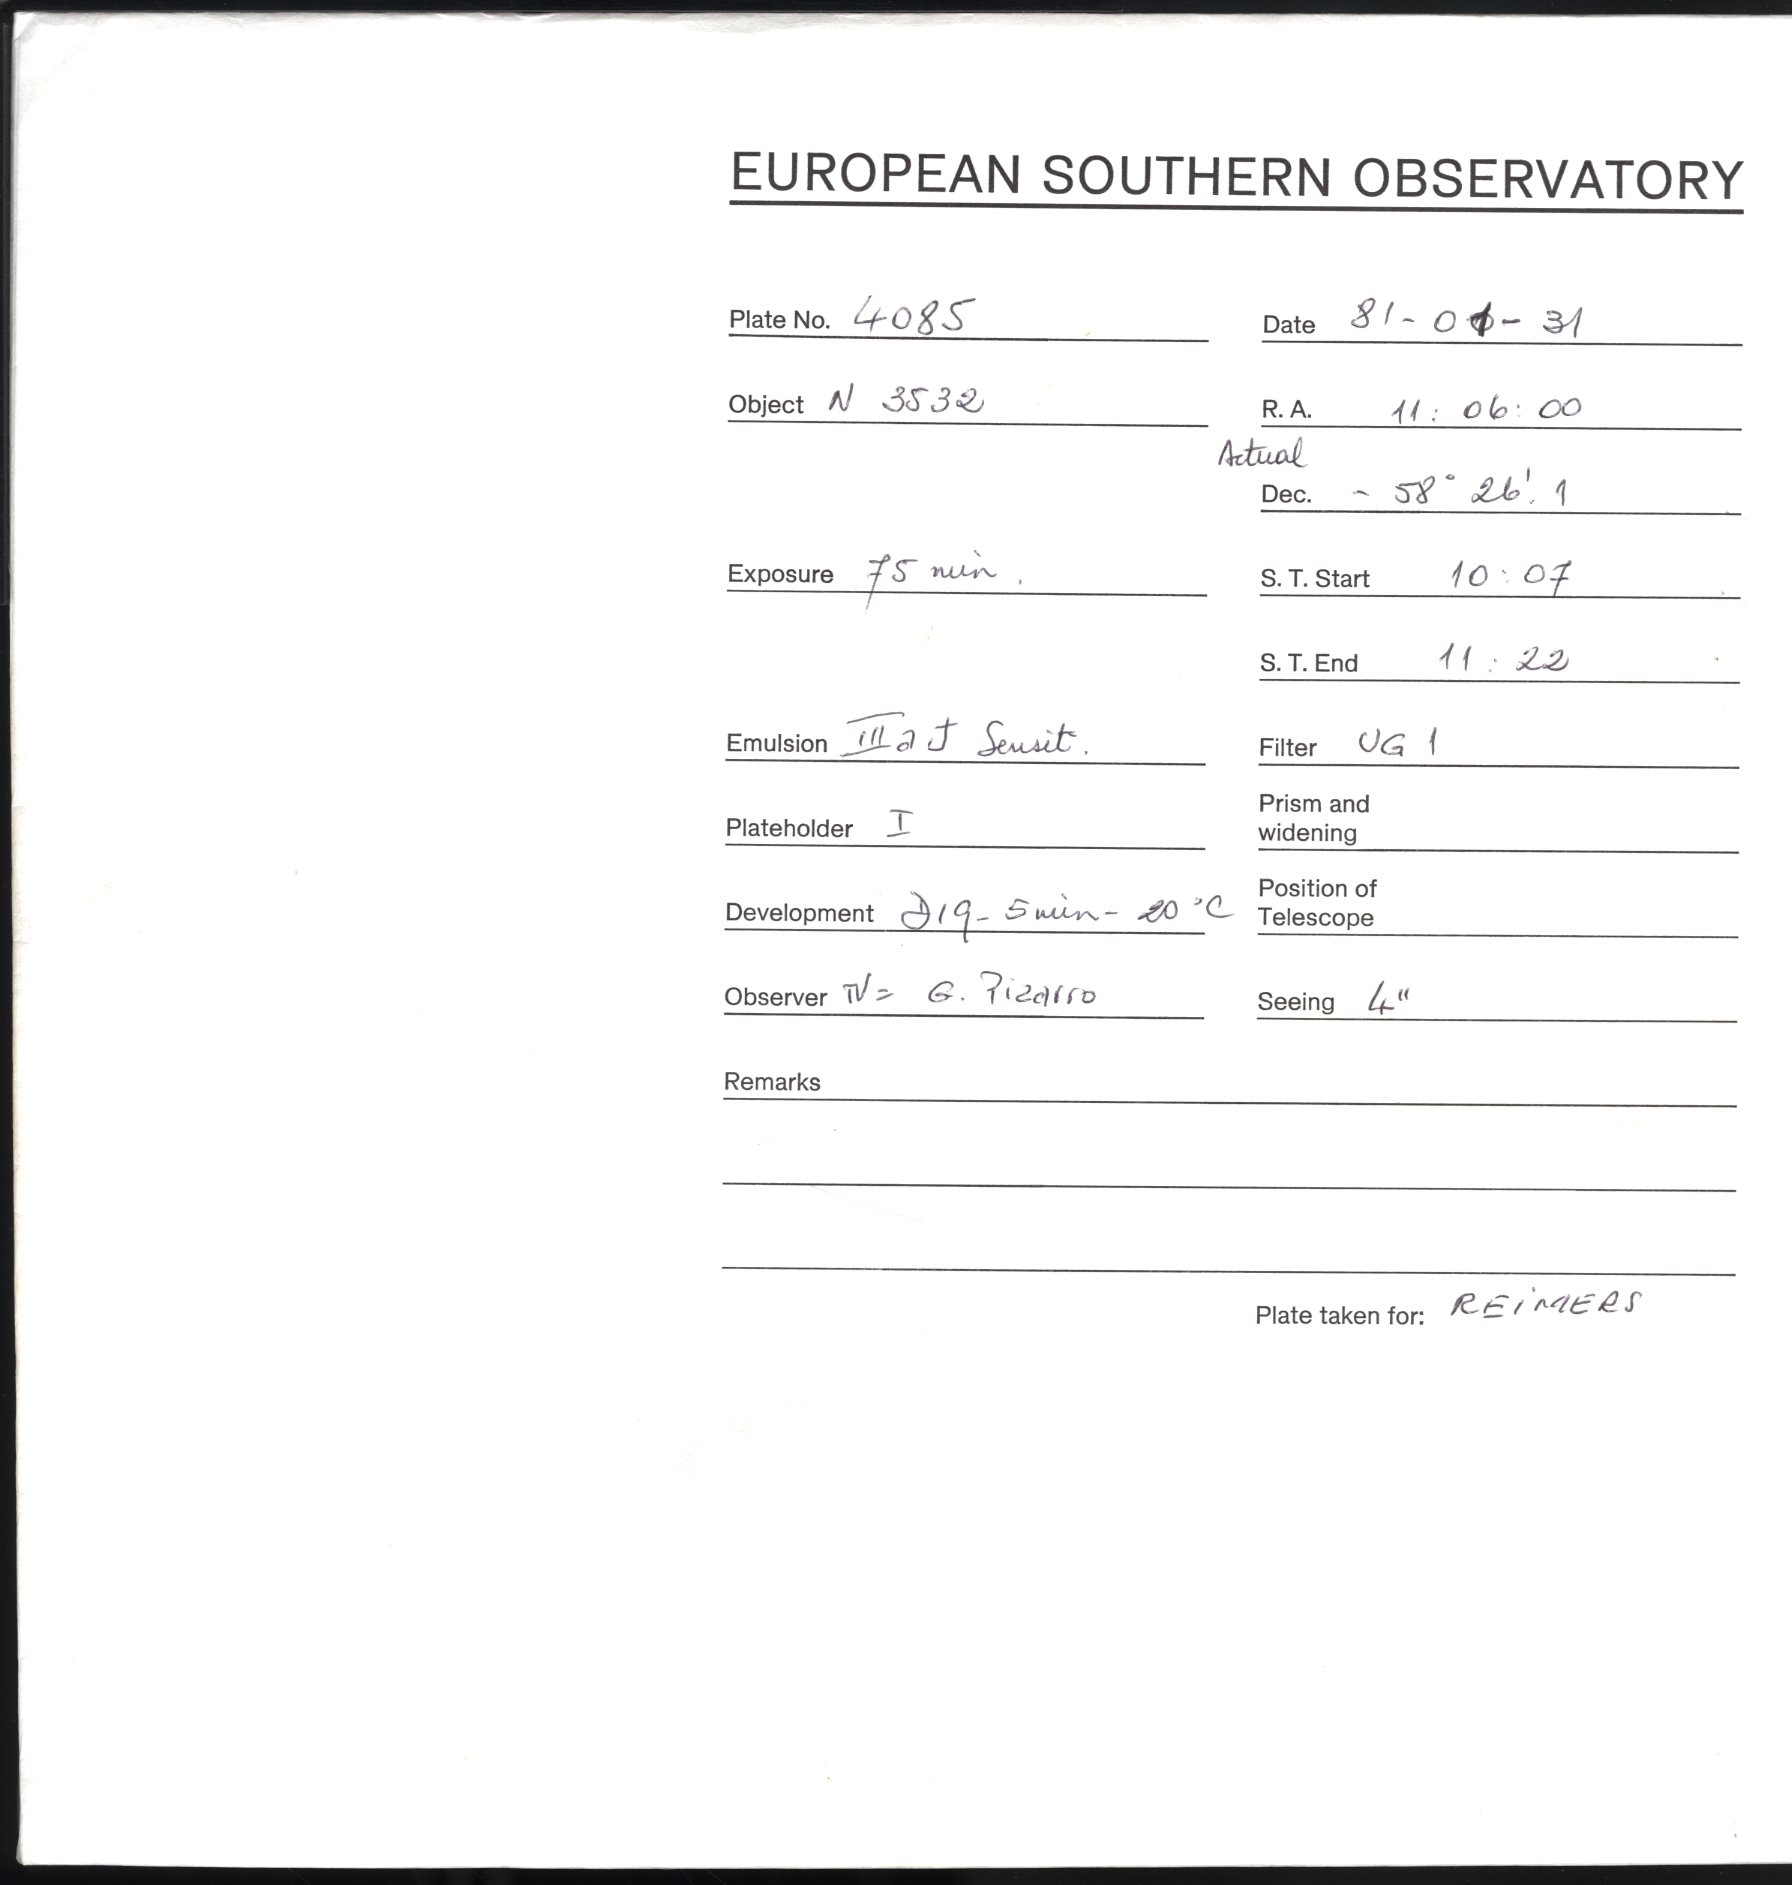 EUROPEAN SOUTHERN OBSERVATORY
Plate No. 4085
Date 81-01-31
Object N 3532
R. A. 11: 06: 00
Actual
Dec. - 58° 26'. 1
Exposure 75 min.
S. T. Start 10:07
S. T. End 11:22
Emulsion III a J Sensit.
Filter UG 1
Plateholder I
Prism and
widening
Development D19-5min-20°C
Position of
Telescope
Observer G. Pizarro
Seeing 4"
Remarks
Plate taken for: REiMERS